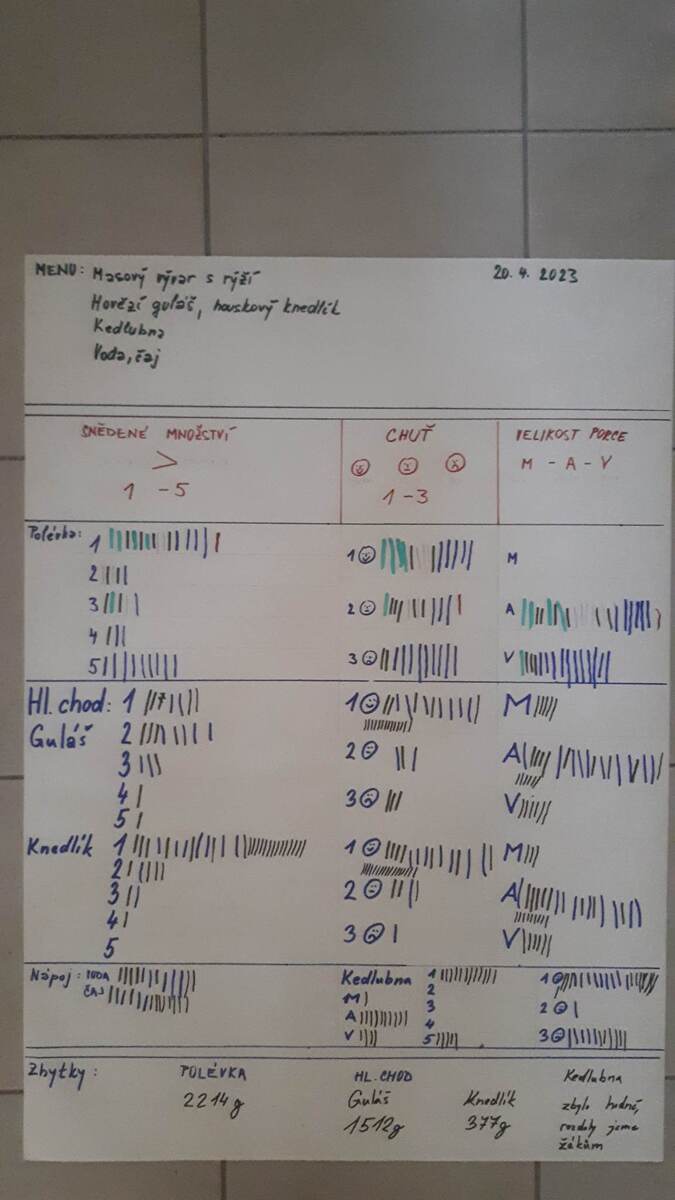 MENU: Masový vývar s rýží
20. 4. 2023
Hovězí guláš, houskový knedlík
Kedlubna
Voda, čaj
SNĚDENÉ MNOŽSTVÍ
CHUŤ
VELIKOST PORCE
>
M - A - V
1 - 5
1 - 3
Polévka: 1
1
M
2
3
2
A
4
5
3
V
Hl. chod: 1
1
M
Guláš 2
2
A
3
4
3
V
5
Knedlík 1
1
M
2
3
2
A
4
5
3
V
Nápoj: VODA
ČAJ
Kedlubna
M
A
V
1
2
3
4
5
1
2
3
Zbytky:
POLÉVKA
2214g
HL. CHOD
Guláš
1512g
Knedlík
377g
Kedlubna
zbylo hodně,
jsme
žákům